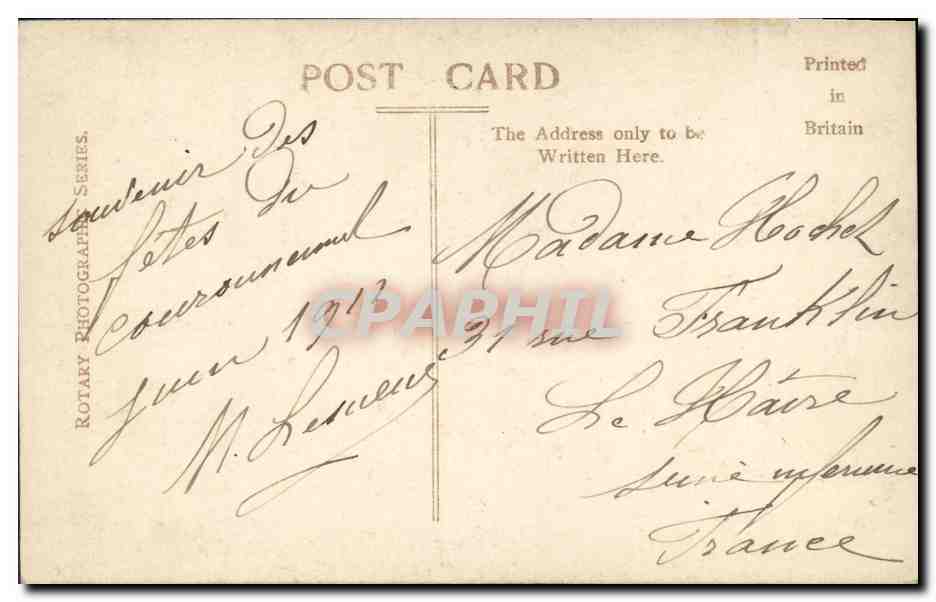 POST CARD
Printed
in
Britain
The Address only to be
Written Here.
ROTARY PHOTOGRAPHIC SERIES.
souvenir des
fêtes du
couronnement
juin 191
M.
Madame Hochet
31 rue Franklin
Le Hâvre
Seine inferieure
France
CPAPHIL